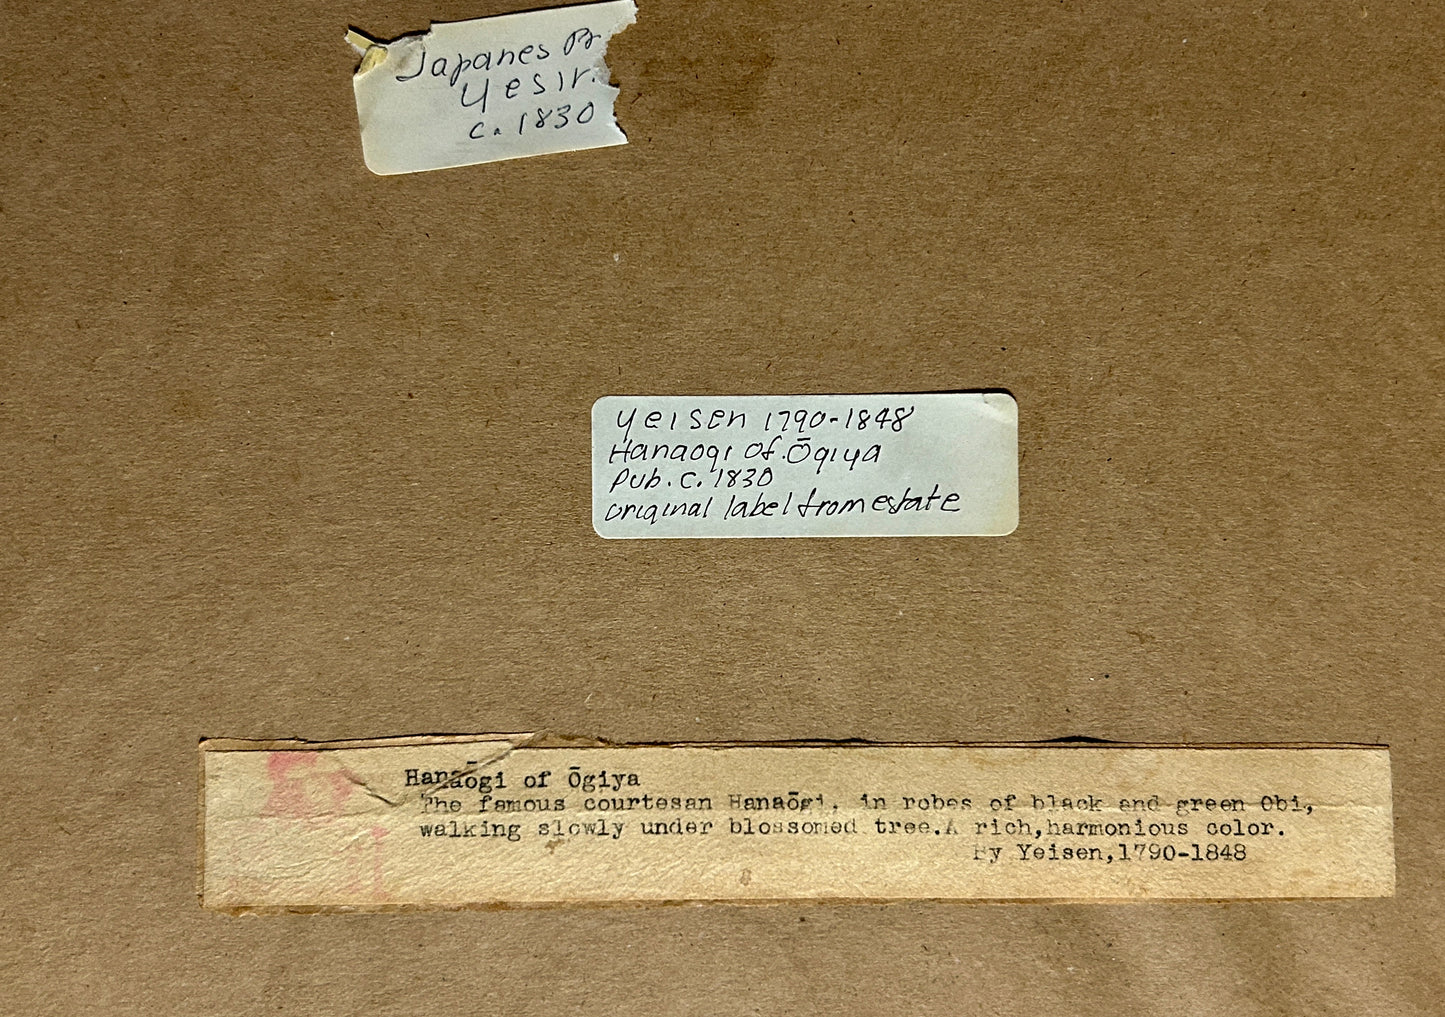 Japanes Pr
Yesir.
c. 1830
Yeisen 1790-1848
Hanaogi of Ōgiya
Pub. c. 1830
original label from estate
Hanaōgi of Ōgiya
The famous courtesan Hanaōgi, in robes of black and green Obi,
walking slowly under blossomed tree.A rich,harmonious color.
By Yeisen,1790-1848